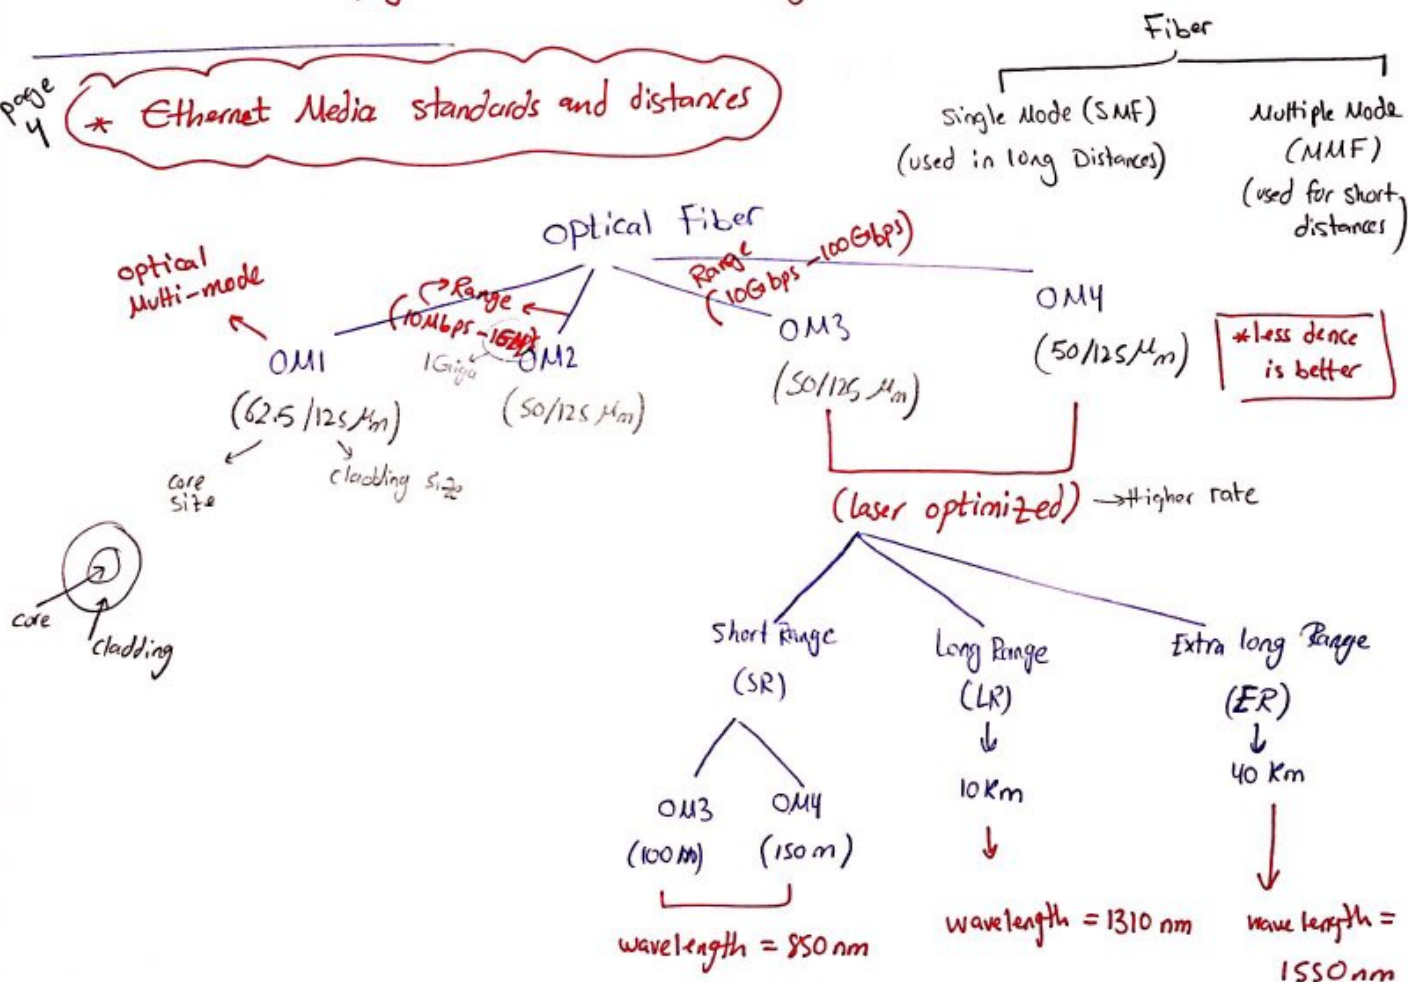 page
4
* Ethernet Media standards and distances
Fiber
Single Mode (SMF)
(used in long Distances)
Multiple Mode
(MMF)
(used for short
distances)
Optical Fiber
optical
Multi-mode
Range
(10Mbps - 1Gbps)
1Giga
Range
(10Gbps - 100Gbps)
OM1
(62.5/125 μm)
core
size
cladding size
OM2
(50/125 μm)
OM3
(50/125 μm)
OM4
(50/125 μm)
*less dence
is better
core
cladding
(laser optimized) → Higher rate
Short Range
(SR)
OM3
(100m)
OM4
(150m)
wavelength = 850nm
Long Range
(LR)
10Km
wavelength = 1310 nm
Extra long Range
(ER)
40 Km
wave length =
1550nm